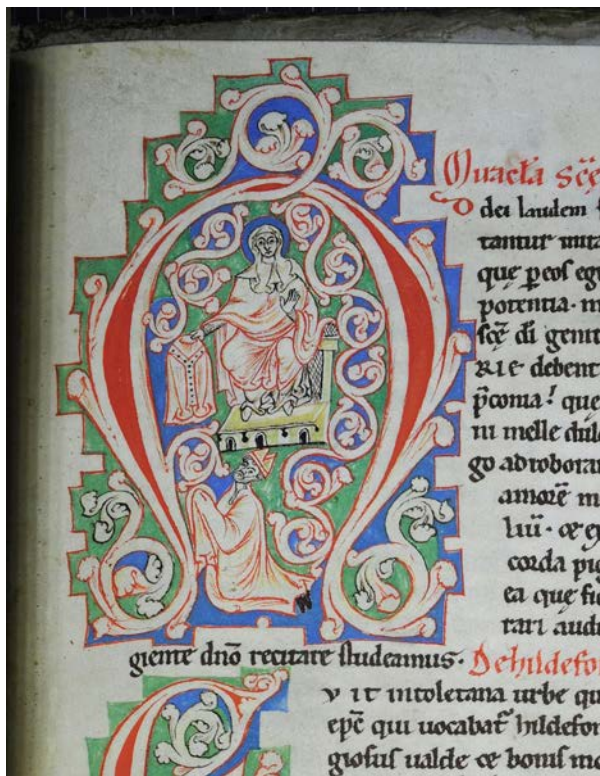 Miracta scē
O dei laudem
tantur mira
que p eos egr
potentia. m
scē di genit
RIE debent
pconia! que
in melle dul
go ad roboran
amorē m
liū. & ex
corda pio
ea que fid
rari audi
giente dn̄o recitare studeamus. De hildefon
v it in toletana urbe qu
epc̄ qui uocabat̄ hildefon
giosus ualde & bonis mo